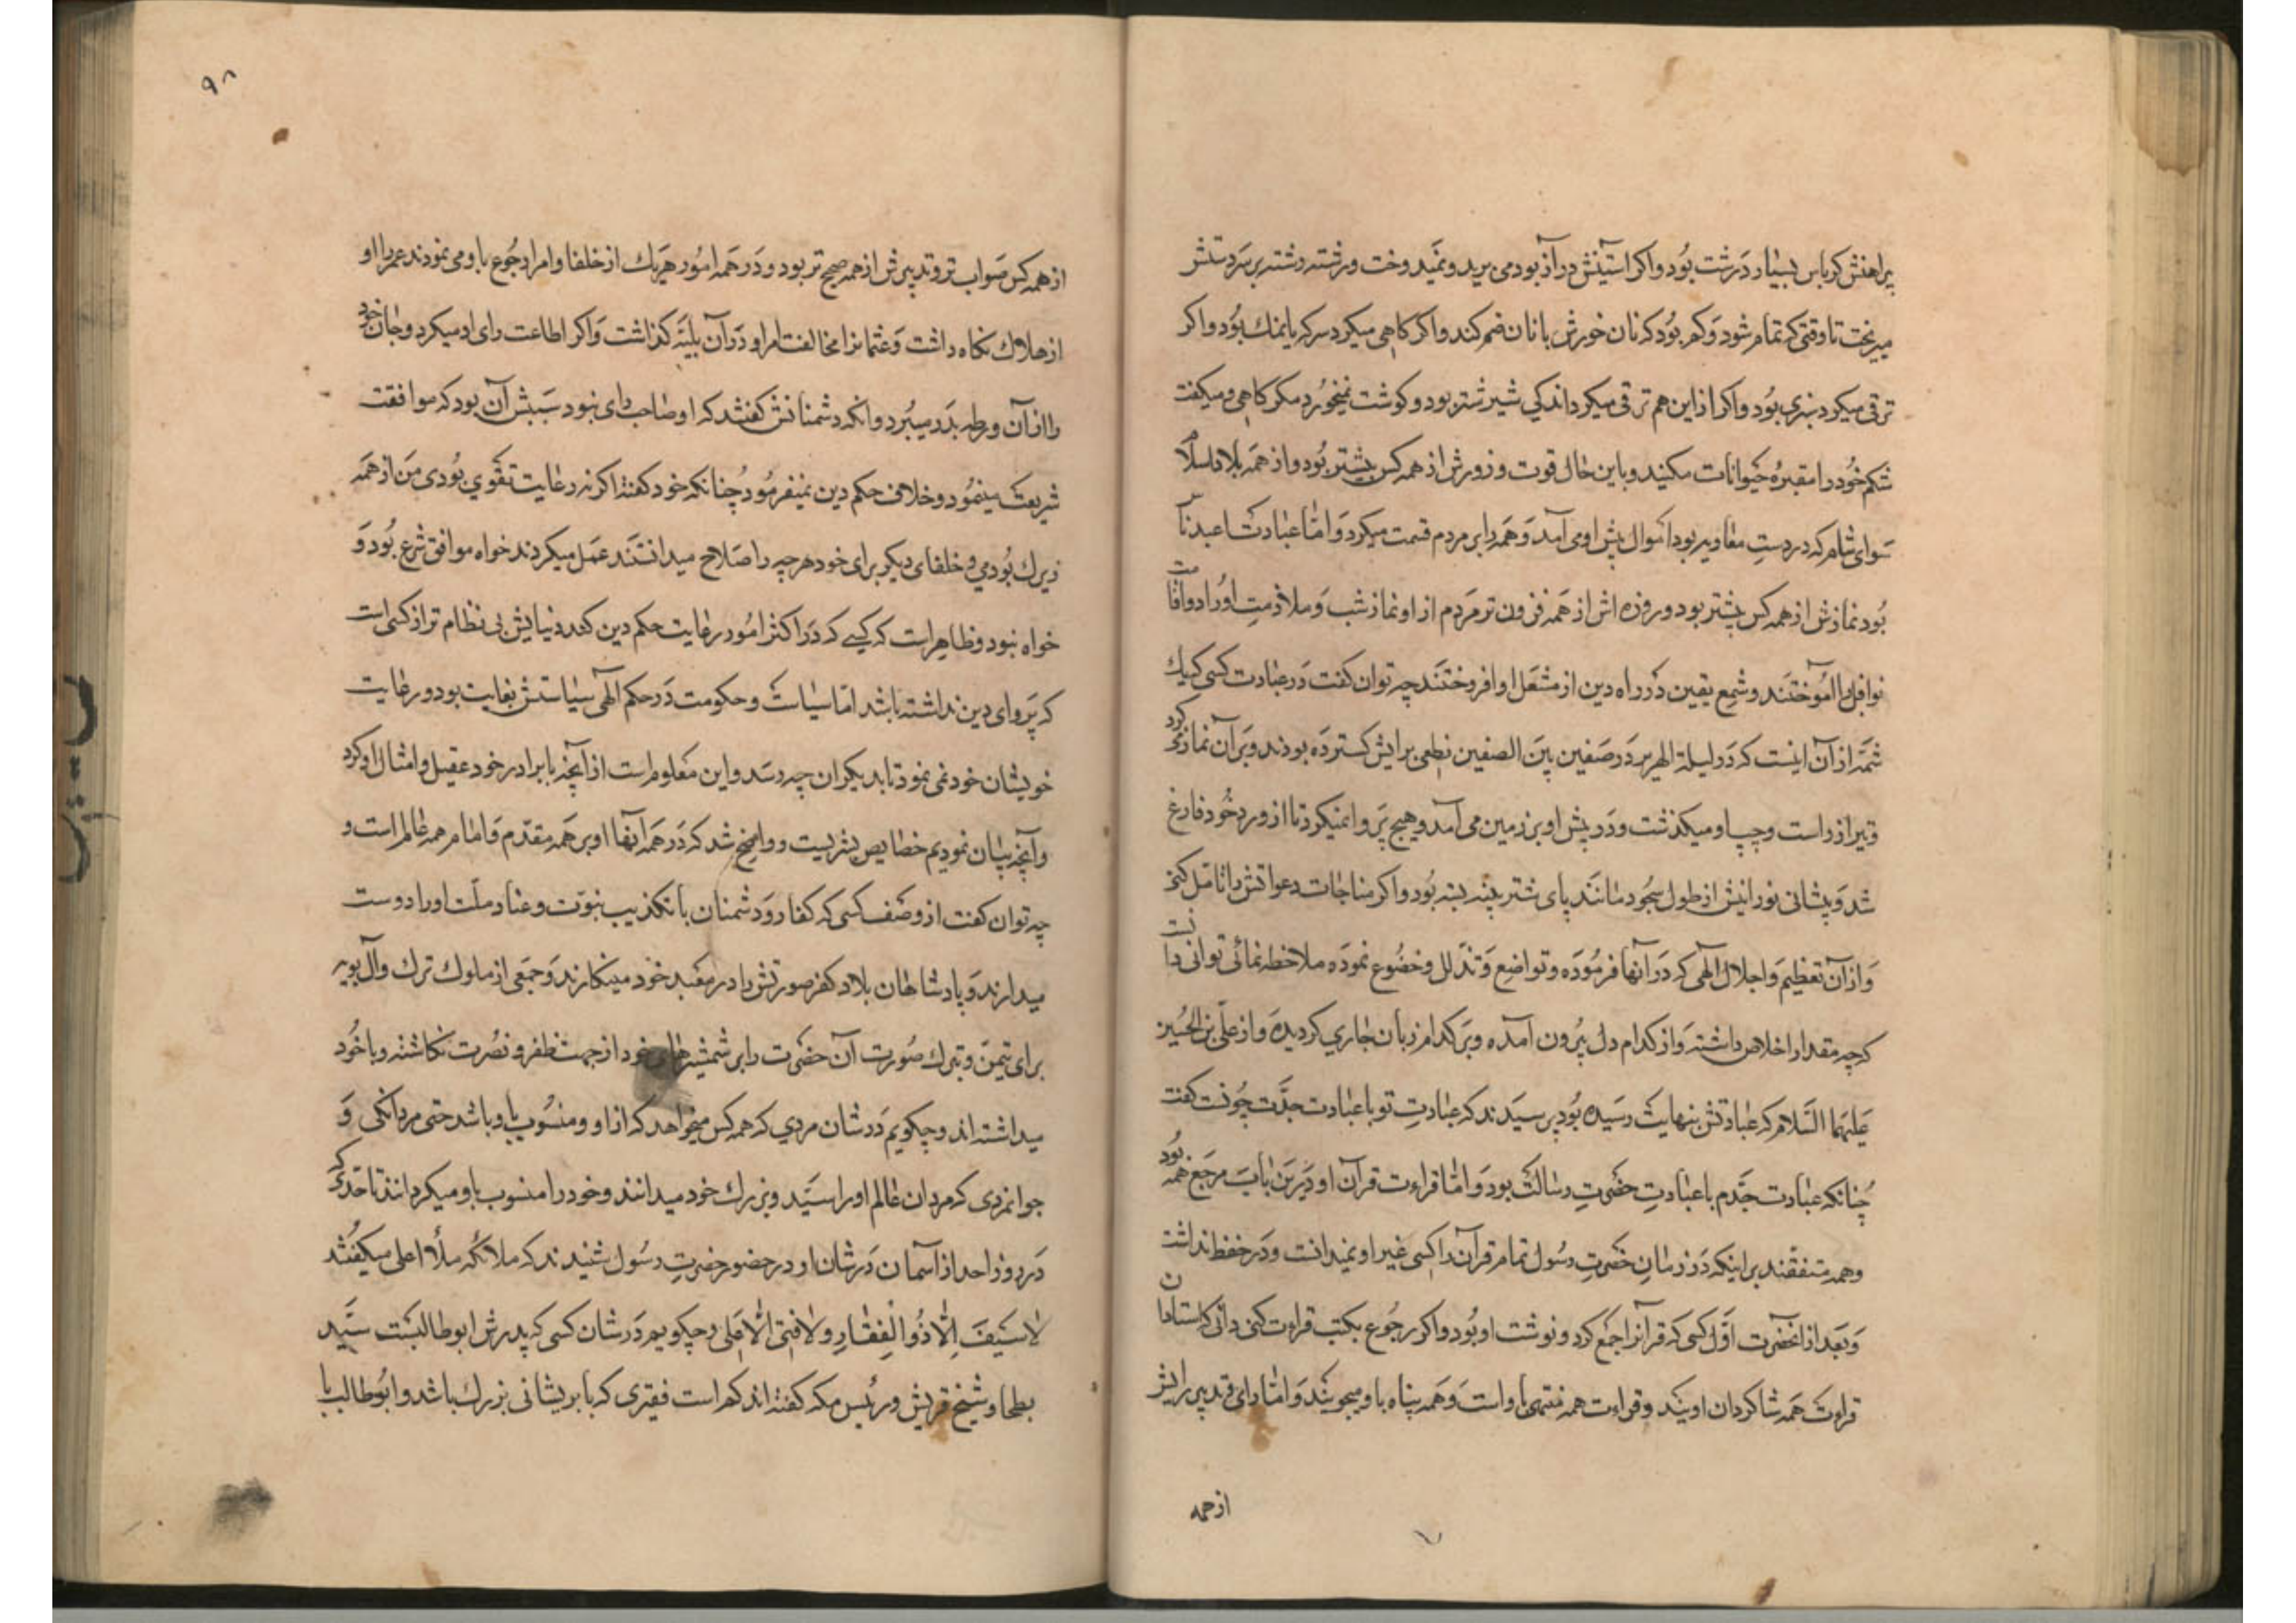 پیراهنش کرباس بسیار درشت بود و اکر آستینش دراز بود می برید و نمیدوخت و رشته رشته بر سر دستش
میریخت تا وقتی که تمام شود و کم بود که نان خورش با نان ضم کند و اکر کاهی میکرد سرکه یا نمک بود و اکر
ترقی میکرد سبزی بود و اکر از این هم ترقی میکرد اندکی شیر شتر بود و کوشت نمیخورد مکر کاهی و میکفت
شکم خود را مقبرهٔ حیوانات مکنید و باین حال قوت و زورش از همه کس بیشتر بود و از همه بلاد اسلام
سوای شام که در دست معاویه بود اموال پیش او می آمد و همه را بر مردم قسمت میکرد و امّا عبادت اعبد ناس
بود نمازش از همه کس بیشتر بود و روزه اش از همه فزون تر مردم از او نماز شب و ملازمت اوراد و اقامت
نوافل را آموختند و شمع یقین در راه دین از مشعل او افروختند چه توان کفت در عبادت کسی که یک
شمّه از آن اینست که در لیلة الهریر در صفین بین الصفین نطعی برایش کسترده بودند و بر آن نماز میکرد
و تیر از راست و چپ او میکذشت و در پیش او بر زمین می آمد و هیچ پروا نمیکرد تا از ورد خود فارغ
شد و پیشانی نورانیش از طول سجود مانند پای شتر پینه بسته بود و اکر مناجات و دعواتش را تامّل کنی
و از آن تعظیم و اجلال آلهی که در آنها فرموده و تواضع و تذلّل و خضوع نموده ملاحظه نمائی توانی دانست
که چه مقدار اخلاص داشته و از کدام دل بیرون آمده و بر کدام زبان جاری کردیده و از علی بن الحسین
علیهما السّلام که عبادتش بنهایت رسیده بود پرسیدند که عبادت تو با عبادت جدّت چونست کفت
چنانکه عبادت جدّم با عبادت حضرت رسالت بود و امّا قراءت قرآن او در این باب مرجع همه بود
و همه متفقند بر اینکه در زمان حضرت رسول تمام قرآن را کسی غیر او نمیدانست و در حفظ نداشت
و بعد از آنحضرت اوّل کسی که قرآنرا جمع کرد و نوشت او بود و اکر رجوع بکتب قراءت کنی دانی که استادان
قراءت همه شاکردان اویند و قراءت همه منتهی باو است و همه پناه باو میجویند و امّا رای و تدبیر رایش
از همه
۹۸
از همه کس صواب تر و تدبیرش از همه صحیح تر بود و در همه امور هر یک از خلفا و امرا رجوع باو می نمودند عمر را او
از هلاک نکاه داشت و عثمانرا مخالفت امر او در آن بلیّه کذاشت و اکر اطاعت رای او میکرد و جان خود
را از آن ورطه بدر میبرد و آنکه دشمنانش کفتند که او صاحب رای نبود سببش آن بود که موافقت
شریعت مینمود و خلاف حکم دین نمیفرمود چنانکه خود کفته اکر نه رعایت تقوی بودی من از همه
زیرک بودمی و خلفای دیکر برای خود هر چه را صلاح میدانستند عمل میکردند خواه موافق شرع بود و
خواه نبود و ظاهر است که کسی که در اکثر امور رعایت حکم دین کند دنیایش بی نظام تر از کسی است
که پروای دین نداشته باشد امّا سیاست و حکومت در حکم الهی سیاستش بغایت بود و رعایت
خویشان خود نمی نمود تا بدیکران چه رسد و این معلوم است از آنچه با برادر خود عقیل و امثال او کرد
و آنچه بیان نمودیم خصایص بشریست و واضح شد که در همه آنها او بر همه مقدّم و امام همه عالم است و
چه توان کفت از وصف کسی که کفار و دشمنان با تکذیب نبوّت و عناد ملّت او را دوست
میدارند و پادشاهان بلاد کفر صورتش را در معبد خود مینکارند و جمعی از ملوک ترک و آل بویه
برای تیمّن و تبرک صورت آن حضرت را بر شمشیرهای خود از جهت ظفر و نصرت نکاشته و با خود
میداشته اند و چکویم در شان مردی که همه کس میخواهد که از او و منسوب باو باشد حتی مردانکی و
جوانمردی که مردان عالم او را سیّد و بزرک خود میدانند و خود را منسوب باو میکردانند تا حدّی که
در روز احد از آسمان در شان او در حضور حضرت رسول شنیدند که ملائکه ملأ اعلی میکفتند
لا سَیفَ اِلّا ذُو الْفِقارِ وَلا فَتی اِلّا عَلی و چکویم در شان کسی که پدرش ابوطالبست سیّد
بطحا و شیخ قریش و رئیس مکه کفته اند کم است فقیری که با پریشانی بزرک باشد و ابوطالب با